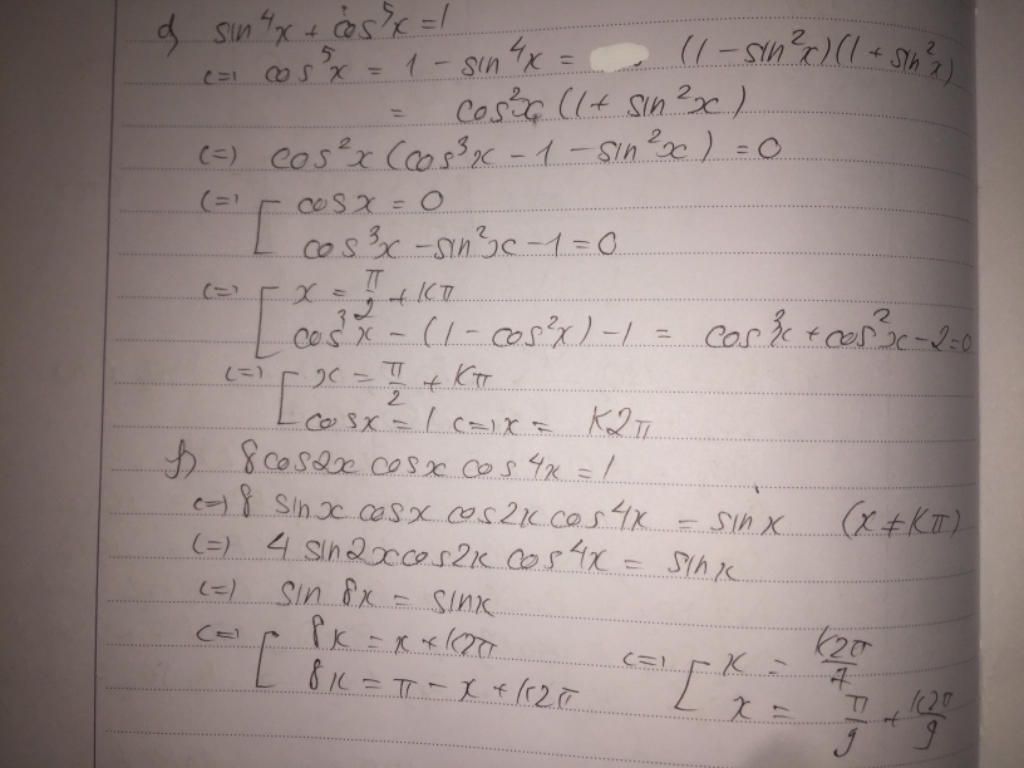 d) sin⁴x + cos⁵x = 1
<=> cos⁵x = 1 - sin⁴x = (1 - sin²x)(1 + sin²x)
= cos²x (1 + sin²x)
<=> cos²x (cos³x - 1 - sin²x) = 0
<=> [ cosx = 0
cos³x - sin²x - 1 = 0
<=> [ x = π/2 + Kπ
cos³x - (1 - cos²x) - 1 = cos³x + cos²x - 2 = 0
<=> [ x = π/2 + Kπ
cosx = 1 <=> x = K2π
f) 8cos2x cosx cos4x = 1
<=> 8 sinx cosx cos2x cos4x = sinx (x ≠ Kπ)
<=> 4 sin2x cos2x cos4x = sinx
<=> sin 8x = sinx
<=> [ 8x = x + K2π <=> [ x = K2π/7
8x = π - x + K2π x = π/9 + K2π/9